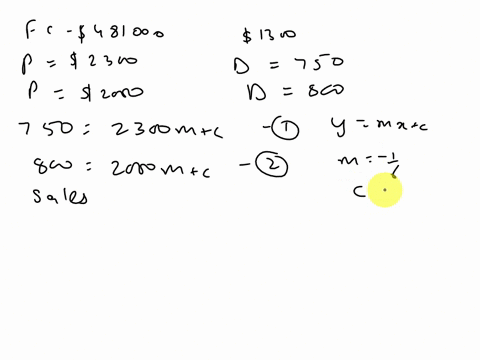 FC - $481000 $1300
P = $2300 D = 750
P = $2000 D = 800
750 = 2300m+c -① y = mx+c
800 = 2000m+c -② m = -1/6
Sales c